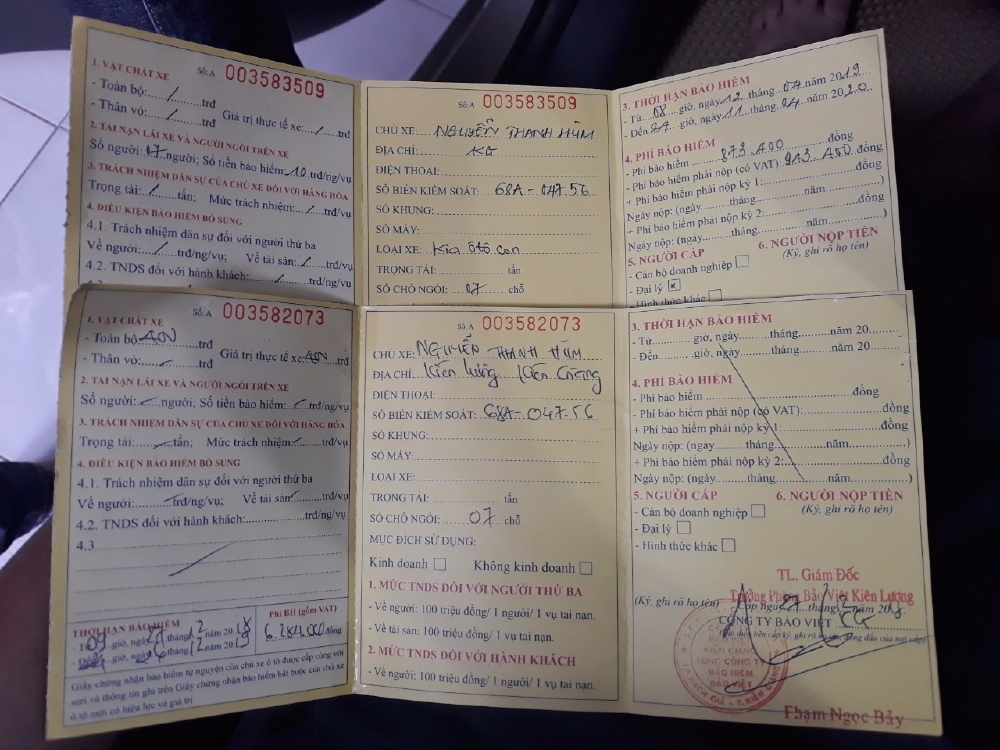 Số: A 003583509
1. VẬT CHẤT XE
- Toàn bộ: / trđ
- Thân vỏ: / trđ Giá trị thực tế xe: / trđ
2. TAI NẠN LÁI XE VÀ NGƯỜI NGỒI TRÊN XE
Số người: 07 người; Số tiền bảo hiểm: 10 trđ/ng/vụ
3. TRÁCH NHIỆM DÂN SỰ CỦA CHỦ XE ĐỐI VỚI HÀNG HÓA
Trọng tải: / tấn; Mức trách nhiệm: / trđ/vụ
4. ĐIỀU KIỆN BẢO HIỂM BỔ SUNG
4.1. Trách nhiệm dân sự đối với người thứ ba
Về người: / trđ/ng/vụ; Về tài sản: / trđ/vụ
4.2. TNDS đối với hành khách: / trđ/ng/vụ
Số: A 003583509
CHỦ XE: NGUYỄN THANH HÙM
ĐỊA CHỈ: KG
ĐIỆN THOẠI:
SỐ BIỂN KIỂM SOÁT: 68A - 047.56
SỐ KHUNG:
SỐ MÁY:
LOẠI XE: Kia ôtô con
TRỌNG TẢI: tấn
SỐ CHỖ NGỒI: 07 chỗ
3. THỜI HẠN BẢO HIỂM
- Từ 08 giờ, ngày 12 tháng 04 năm 2019
- Đến giờ, ngày 11 tháng 04 năm 2020
4. PHÍ BẢO HIỂM
- Phí bảo hiểm đồng
- Phí bảo hiểm phải nộp (có VAT): đồng
+ Phí bảo hiểm phải nộp kỳ 1: đồng
Ngày nộp: (ngày tháng năm )
+ Phí bảo hiểm phải nộp kỳ 2: đồng
Ngày nộp: (ngày tháng năm )
5. NGƯỜI CẤP 6. NGƯỜI NỘP TIỀN
- Cán bộ doanh nghiệp (Ký, ghi rõ họ tên)
- Đại lý x
- Hình thức khác
Số: A 003582073
1. VẬT CHẤT XE
- Toàn bộ trđ
- Thân vỏ: trđ Giá trị thực tế xe: trđ
2. TAI NẠN LÁI XE VÀ NGƯỜI NGỒI TRÊN XE
Số người: người; Số tiền bảo hiểm: trđ/ng/vụ
3. TRÁCH NHIỆM DÂN SỰ CỦA CHỦ XE ĐỐI VỚI HÀNG HÓA
Trọng tải: tấn; Mức trách nhiệm trđ/vụ
4. ĐIỀU KIỆN BẢO HIỂM BỔ SUNG
4.1. Trách nhiệm dân sự đối với người thứ ba
Về người: trđ/ng/vụ; Về tài sản: trđ/vụ
4.2. TNDS đối với hành khách: trđ/ng/vụ
4.3
THỜI HẠN BẢO HIỂM
- Từ 09 giờ, ngày tháng 12 năm 2018
- Đến giờ, ngày tháng 12 năm 2019
Phí BH (gồm VAT)
6.284.000 đồng
Giấy chứng nhận bảo hiểm tự nguyện của chủ xe ô tô được cấp cùng với
seri và thông tin ghi trên Giấy chứng nhận bảo hiểm bắt buộc của chủ xe
ô tô mới có hiệu lực và giá trị
Số: A 003582073
CHỦ XE: NGUYỄN THANH HÙM
ĐỊA CHỈ: Kiên Lương Kiên Giang
ĐIỆN THOẠI:
SỐ BIỂN KIỂM SOÁT: 68A - 047.56
SỐ KHUNG:
SỐ MÁY:
LOẠI XE:
TRỌNG TẢI: tấn
SỐ CHỖ NGỒI: 07 chỗ
MỤC ĐÍCH SỬ DỤNG:
Kinh doanh Không kinh doanh
1. MỨC TNDS ĐỐI VỚI NGƯỜI THỨ BA
- Về người: 100 triệu đồng/ 1 người/ 1 vụ tai nạn.
- Về tài sản: 100 triệu đồng/ 1 vụ tai nạn.
2. MỨC TNDS ĐỐI VỚI HÀNH KHÁCH
- Về người: 100 triệu đồng/ 1 người/ 1 vụ tai nạn.
3. THỜI HẠN BẢO HIỂM
- Từ giờ, ngày tháng năm 20
- Đến giờ, ngày tháng năm 20
4. PHÍ BẢO HIỂM
- Phí bảo hiểm đồng
- Phí bảo hiểm phải nộp (có VAT): đồng
+ Phí bảo hiểm phải nộp kỳ 1: đồng
Ngày nộp: (ngày tháng năm )
+ Phí bảo hiểm phải nộp kỳ 2: đồng
Ngày nộp: (ngày tháng năm )
5. NGƯỜI CẤP 6. NGƯỜI NỘP TIỀN
- Cán bộ doanh nghiệp (Ký, ghi rõ họ tên)
- Đại lý
- Hình thức khác
TL. Giám Đốc
Trưởng Phòng Bảo Việt Kiên Lương
(Ký, ghi rõ họ tên) Cấp ngày tháng 12 năm 2018
CÔNG TY BẢO VIỆT KG
BẢO VIỆT
KIÊN GIANG
TỔNG CÔNG TY
BẢO HIỂM
BẢO VIỆT
TP. RẠCH GIÁ - T. KIÊN GIANG
Phạm Ngọc Bảy